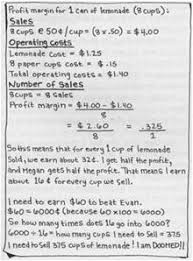 Profit margin for 1 can of lemonade (8 cups):
Sales
8 cups @ 50¢/cup = $4.00
Operating costs
Lemonade = $1.25
8 paper cups = $ .15
Total operating costs = $1.40
Number of Sales
8 cups = 8 sales
Profit margin = $4.00 - $1.40
8
= $2.60 = .325
8 1
So this means that for every 1 cup of lemonade
sold, we earn about 32¢. I get half the profit,
and Megan gets half the profit. That means I earn
about 16¢ for every cup we sell.
I need to earn $60 to beat Evan.
$60 = 6000¢ (because 60 x 100 = 6000)
So how many times does 16 go into 6000?
6000 ÷ 16 = how many cups I need to sell = 375
I need to sell 375 cups of lemonade! I am DOOMED!!